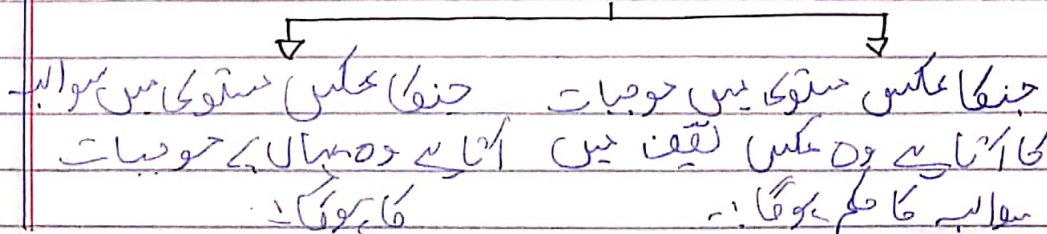 جنکا عکس مستوی میں موجبات
کا آتا ہے وہ عکس نقیض میں
سوالبہ کا حکم ہوگا :۔
جنکا عکس مستوی میں سوالبہ
آتا ہے وہ یہاں پے موجبات
کا ہوگا :۔